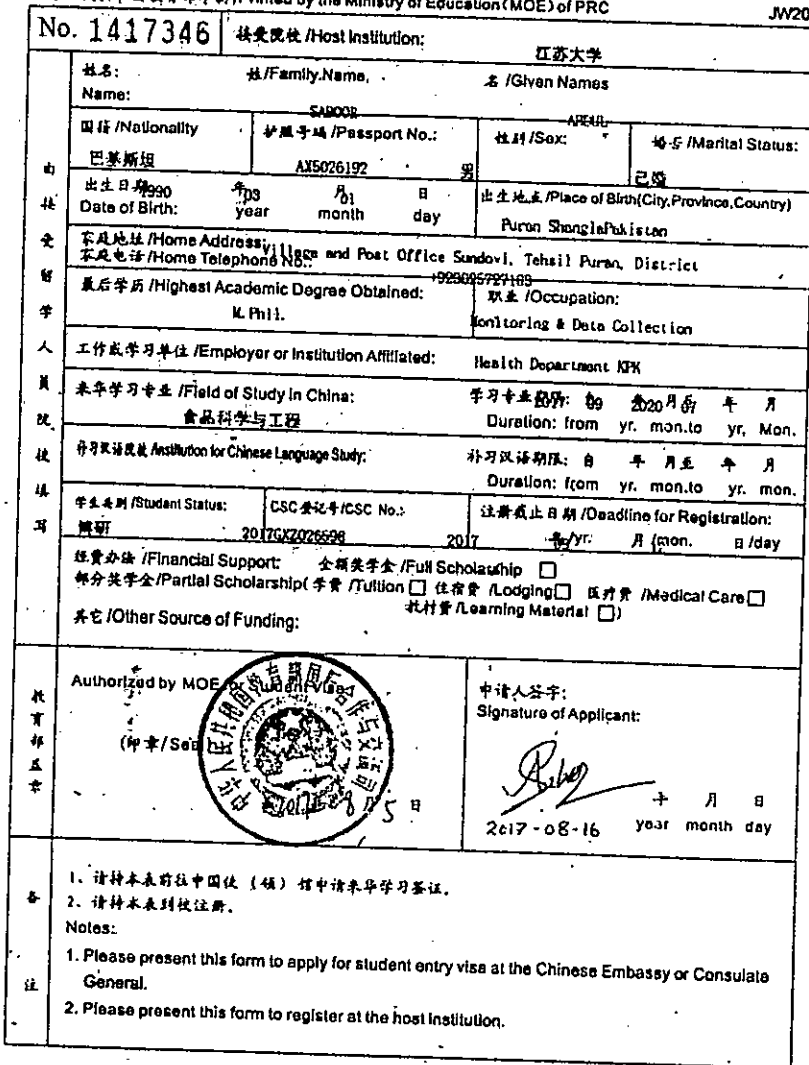 Printed by the Ministry of Education(MOE) of PRC
JW20
No. 1417346
接受院校 /Host Institution:
江苏大学
姓名:
Name:
姓/Family.Name,
名 /Given Names
SABOOR
国籍 /Nationality
护照号码 /Passport No.:
性别 /Sox:
婚否 /Marital Status:
巴基斯坦
AX5026192
男
已婚
出生日期
Date of Birth:
1990 年 03 月 01 日
year month day
出生地点 /Place of Birth(City,Province,Country)
Puran ShanglaPakistan
家庭地址 /Home Address:
Village and Post Office Sundovi, Tehsil Puran, District
家庭电话 /Home Telephone No.:
最后学历 /Highest Academic Degree Obtained:
M.Phil.
职业 /Occupation:
Monitoring & Data Collection
工作或学习单位 /Employer or Institution Affiliated:
Health Department KPK
来华学习专业 /Field of Study in China:
食品科学与工程
学习专业期限: 自 2017 09 2020 月至 07 年 月
Duration: from yr. mon.to yr, Mon.
补习汉语院校 /Institution for Chinese Language Study:
补习汉语期限: 自 年 月至 年 月
Duration: from yr. mon.to yr. mon.
学生类别 /Student Status:
博研
CSC 登记号/CSC No.:
2017GXZ026698
注册截止日期 /Deadline for Registration:
2017 年/yr. 月 (mon. 日 /day
经费办法 /Financial Support: 全额奖学金 /Full Scholarship
部分奖学金/Partial Scholarship( 学费 /Tuition 住宿费 /Lodging 医疗费 /Medical Care
教材费 /Learning Material )
其它 /Other Source of Funding:
由接受留学人员院校填写
教育部盖章
Authorized by MOE for Student Visa
(印章/Seal)
中华人民共和国教育部国际合作与交流司
2017年8月5日
申请人签字:
Signature of Applicant:
年 月 日
2017-08-16 year month day
备注
1、请持本表前往中国使（领）馆申请来华学习签证.
2、请持本表到校注册.
Notes:
1. Please present this form to apply for student entry visa at the Chinese Embassy or Consulate
General.
2. Please present this form to register at the host institution.